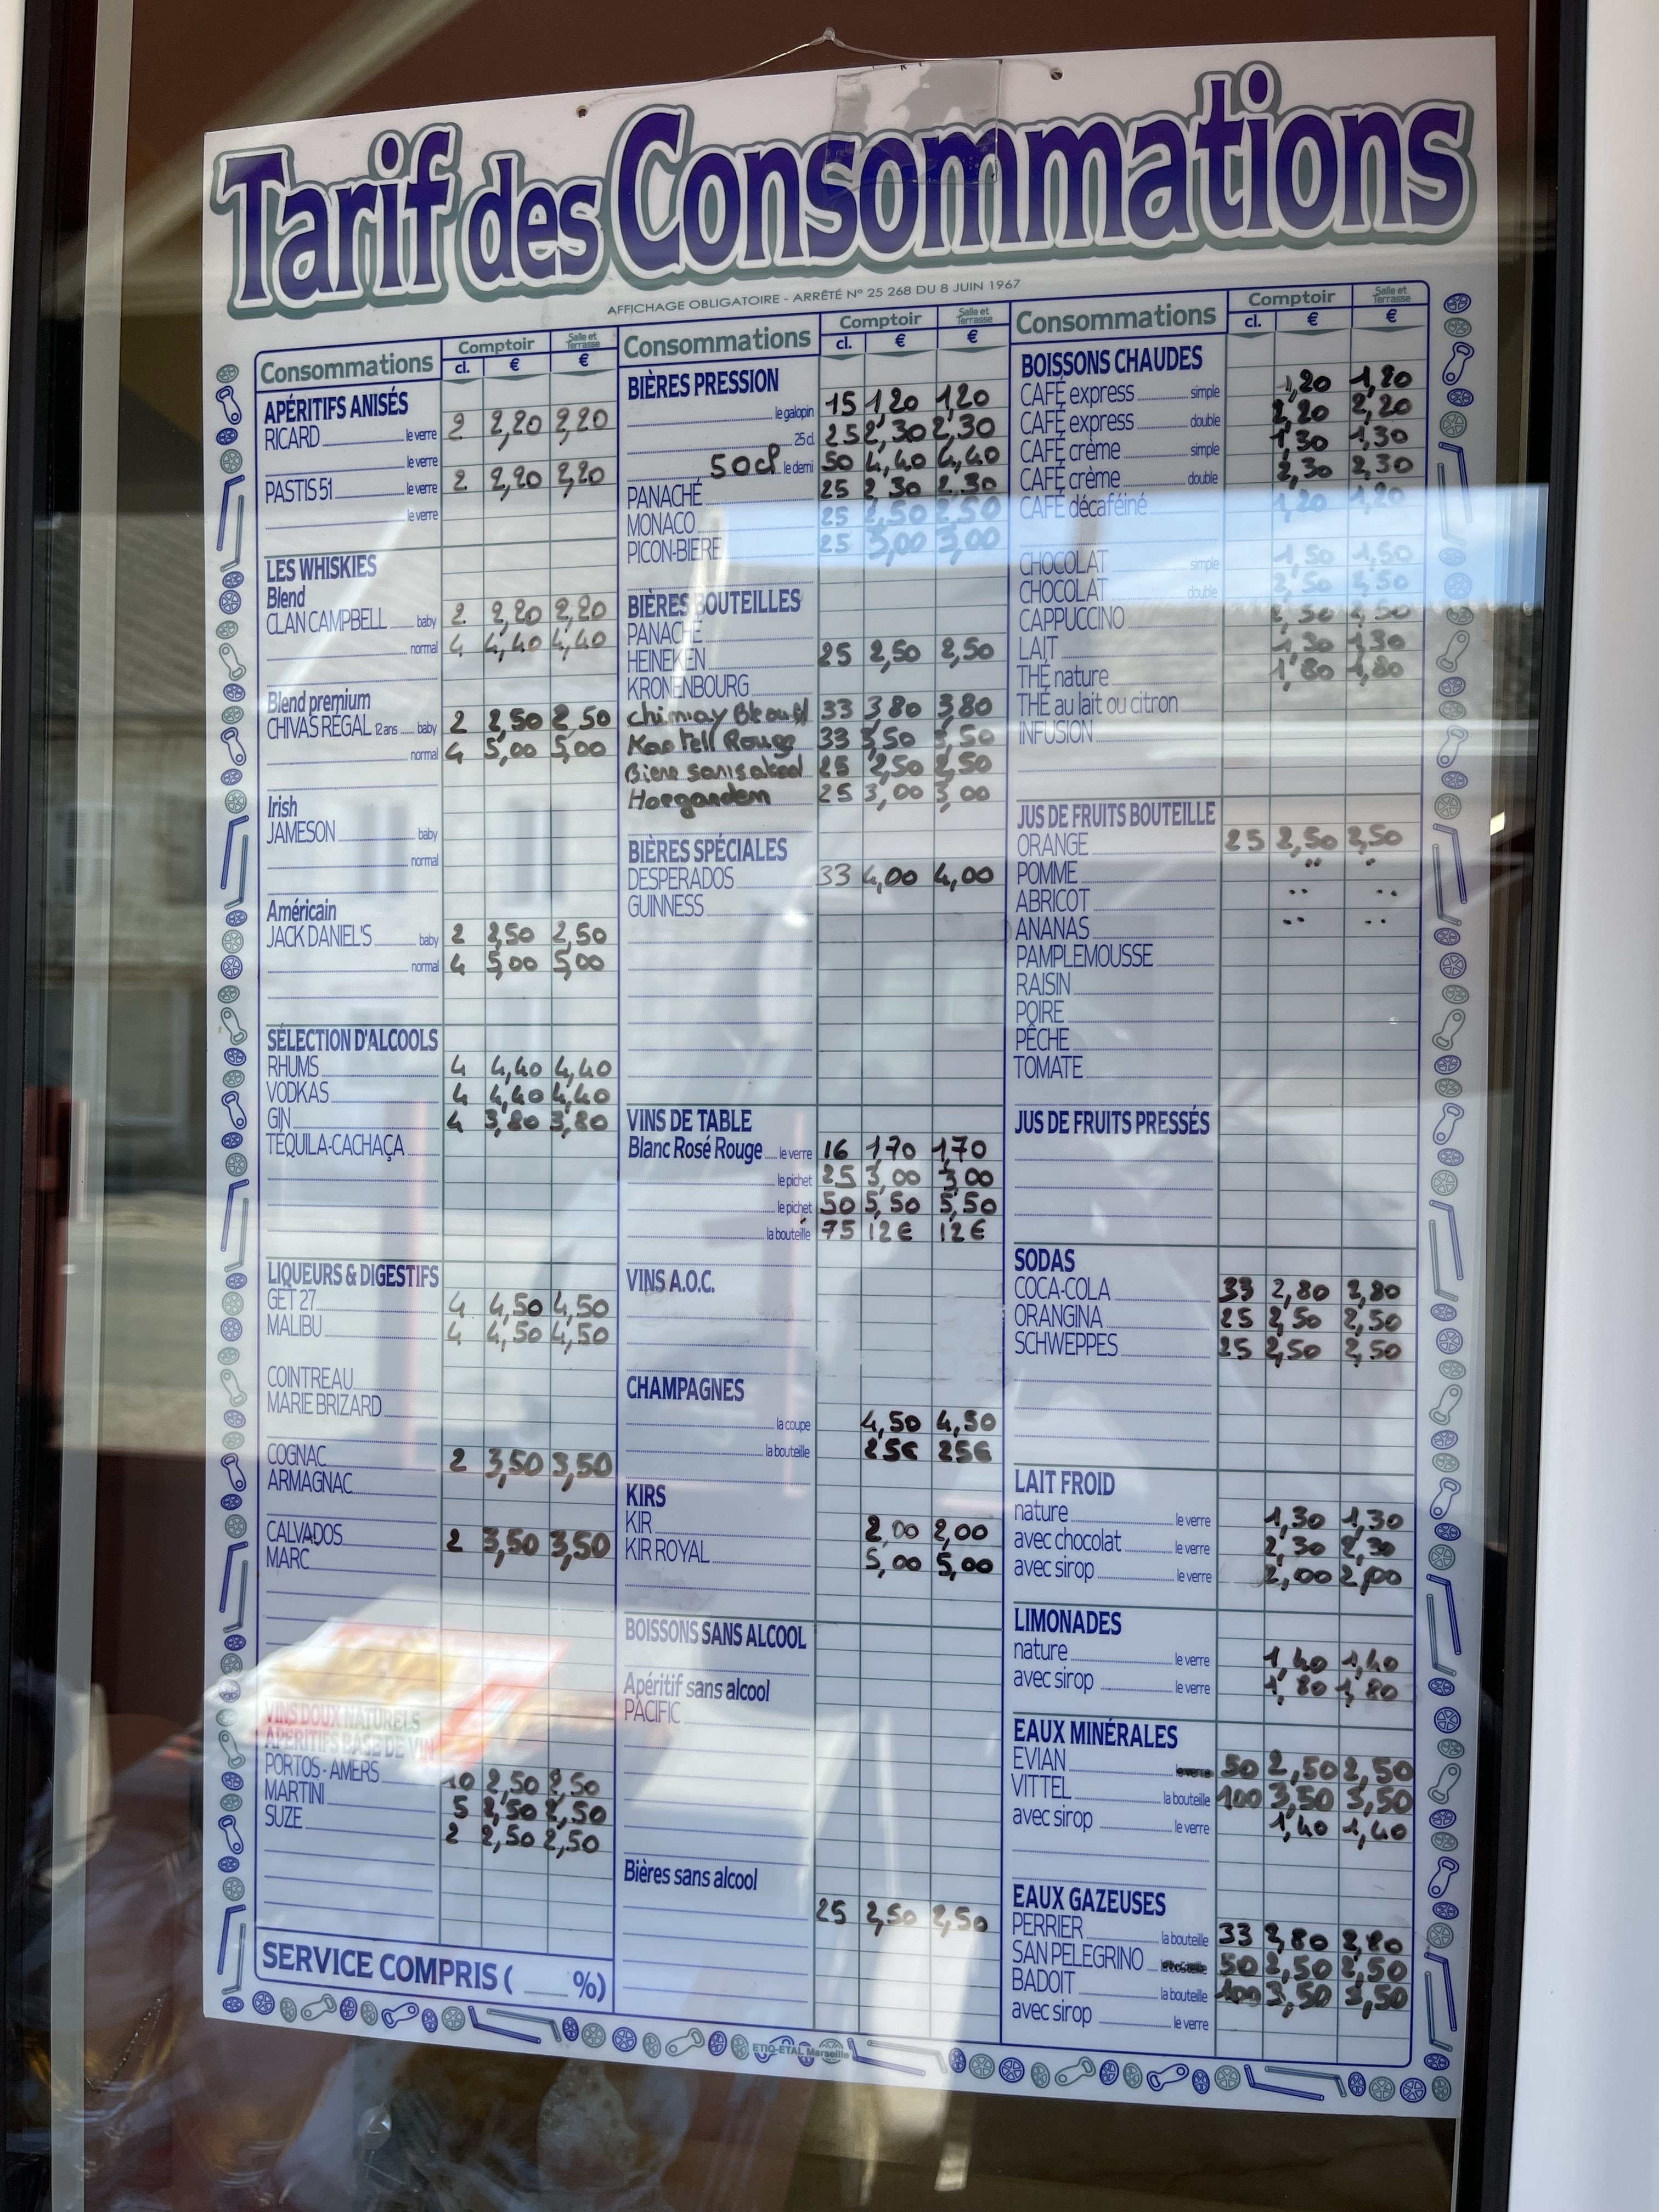 Tarif des Consommations
AFFICHAGE OBLIGATOIRE - ARRÊTÉ N° 25 268 DU 8 JUIN 1967
Consommations Comptoir Salle et Terrasse
cl. € €
APÉRITIFS ANISÉS
RICARD le verre 2 2,20 2,20
le verre
PASTIS 51 le verre 2 2,20 2,20
le verre
LES WHISKIES
Blend
CLAN CAMPBELL baby 2 2,20 2,20
normal 4 4,40 4,40
Blend premium
CHIVAS REGAL 12 ans baby 2 2,50 2,50
normal 4 5,00 5,00
Irish
JAMESON baby
normal
Américain
JACK DANIEL'S baby 2 2,50 2,50
normal 4 5,00 5,00
SÉLECTION D'ALCOOLS
RHUMS 4 4,40 4,40
VODKAS 4 4,40 4,40
GIN 4 3,80 3,80
TEQUILA-CACHAÇA
LIQUEURS & DIGESTIFS
GET 27 4 4,50 4,50
MALIBU 4 4,50 4,50
COINTREAU
MARIE BRIZARD
COGNAC 2 3,50 3,50
ARMAGNAC
CALVADOS 2 3,50 3,50
MARC
VINS DOUX NATURELS
APÉRITIFS BASE DE VIN
PORTOS - AMERS 10 2,50 2,50
MARTINI 5 2,50 2,50
SUZE 2 2,50 2,50
SERVICE COMPRIS ( %)
Consommations Comptoir Salle et Terrasse
cl. € €
BIÈRES PRESSION
le galopin 15 1,20 1,20
25 cl. 25 2,30 2,30
50cl le demi 50 4,40 4,40
PANACHÉ 25 2,30 2,30
MONACO 25 2,50 2,50
PICON-BIÈRE 25 3,00 3,00
BIÈRES BOUTEILLES
PANACHÉ
HEINEKEN 25 2,50 2,50
KRONENBOURG
Chimay 33 3,80 3,80
Kastell Rouge 33 3,50 3,50
Biere sans alcool 25 2,50 2,50
Hoegarden 25 3,00 3,00
BIÈRES SPÉCIALES
DESPERADOS 33 4,00 4,00
GUINNESS
VINS DE TABLE
Blanc Rosé Rouge le verre 16 1,70 1,70
le pichet 25 3,00 3,00
le pichet 50 5,50 5,50
la bouteille 75 12€ 12€
VINS A.O.C.
CHAMPAGNES
la coupe 4,50 4,50
la bouteille 25€ 25€
KIRS
KIR 2,00 2,00
KIR ROYAL 5,00 5,00
BOISSONS SANS ALCOOL
Apéritif sans alcool
PACIFIC
Bières sans alcool
25 2,50 2,50
Consommations Comptoir Salle et Terrasse
cl. € €
BOISSONS CHAUDES
CAFÉ express simple 1,20 1,20
CAFÉ express double 2,20 2,20
CAFÉ crème simple 1,30 1,30
CAFÉ crème double 2,30 2,30
CAFÉ décaféiné 1,20 1,20
CHOCOLAT simple 1,50 1,50
CHOCOLAT double 2,50 2,50
CAPPUCCINO 2,50 2,50
LAIT 1,30 1,30
THÉ nature 1,80 1,80
THÉ au lait ou citron
INFUSION
JUS DE FRUITS BOUTEILLE
ORANGE 25 2,50 2,50
POMME " "
ABRICOT " "
ANANAS " "
PAMPLEMOUSSE
RAISIN
POIRE
PÊCHE
TOMATE
JUS DE FRUITS PRESSÉS
SODAS
COCA-COLA 33 2,80 2,80
ORANGINA 25 2,50 2,50
SCHWEPPES 25 2,50 2,50
LAIT FROID
nature le verre 1,30 1,30
avec chocolat le verre 2,30 2,30
avec sirop le verre 2,00 2,00
LIMONADES
nature le verre 1,40 1,40
avec sirop le verre 1,80 1,80
EAUX MINÉRALES
EVIAN 50 2,50 2,50
VITTEL la bouteille 100 3,50 3,50
avec sirop le verre 1,40 1,40
EAUX GAZEUSES
PERRIER la bouteille 33 2,80 2,80
SAN PELEGRINO 50 2,50 2,50
BADOIT la bouteille 100 3,50 3,50
avec sirop le verre
ETIQ-ETAL Marseille